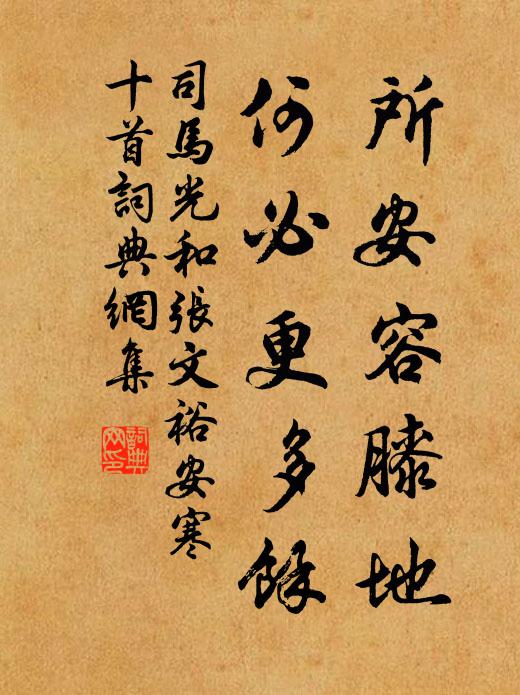 所安容膝地
何必更多餘
司馬光和張文裕安寒
十首詞典網集
詞典
網印